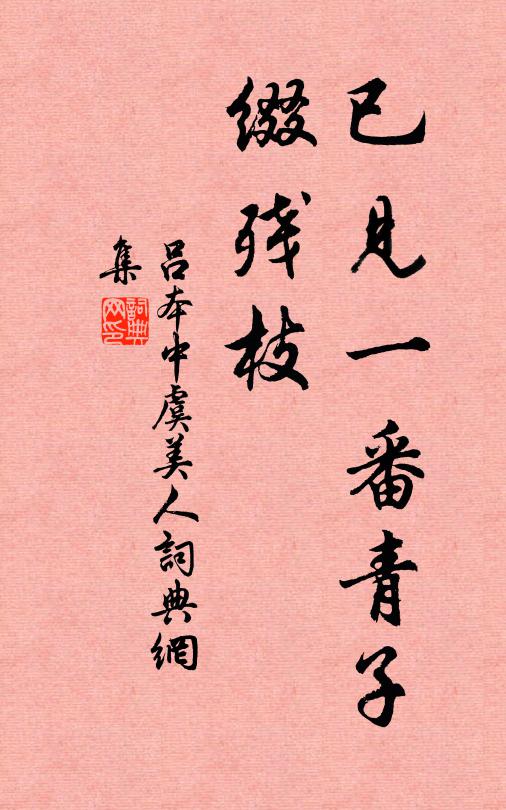 已见一番青子
缀残枝
吕本中虞美人词典網
集
詞典網印